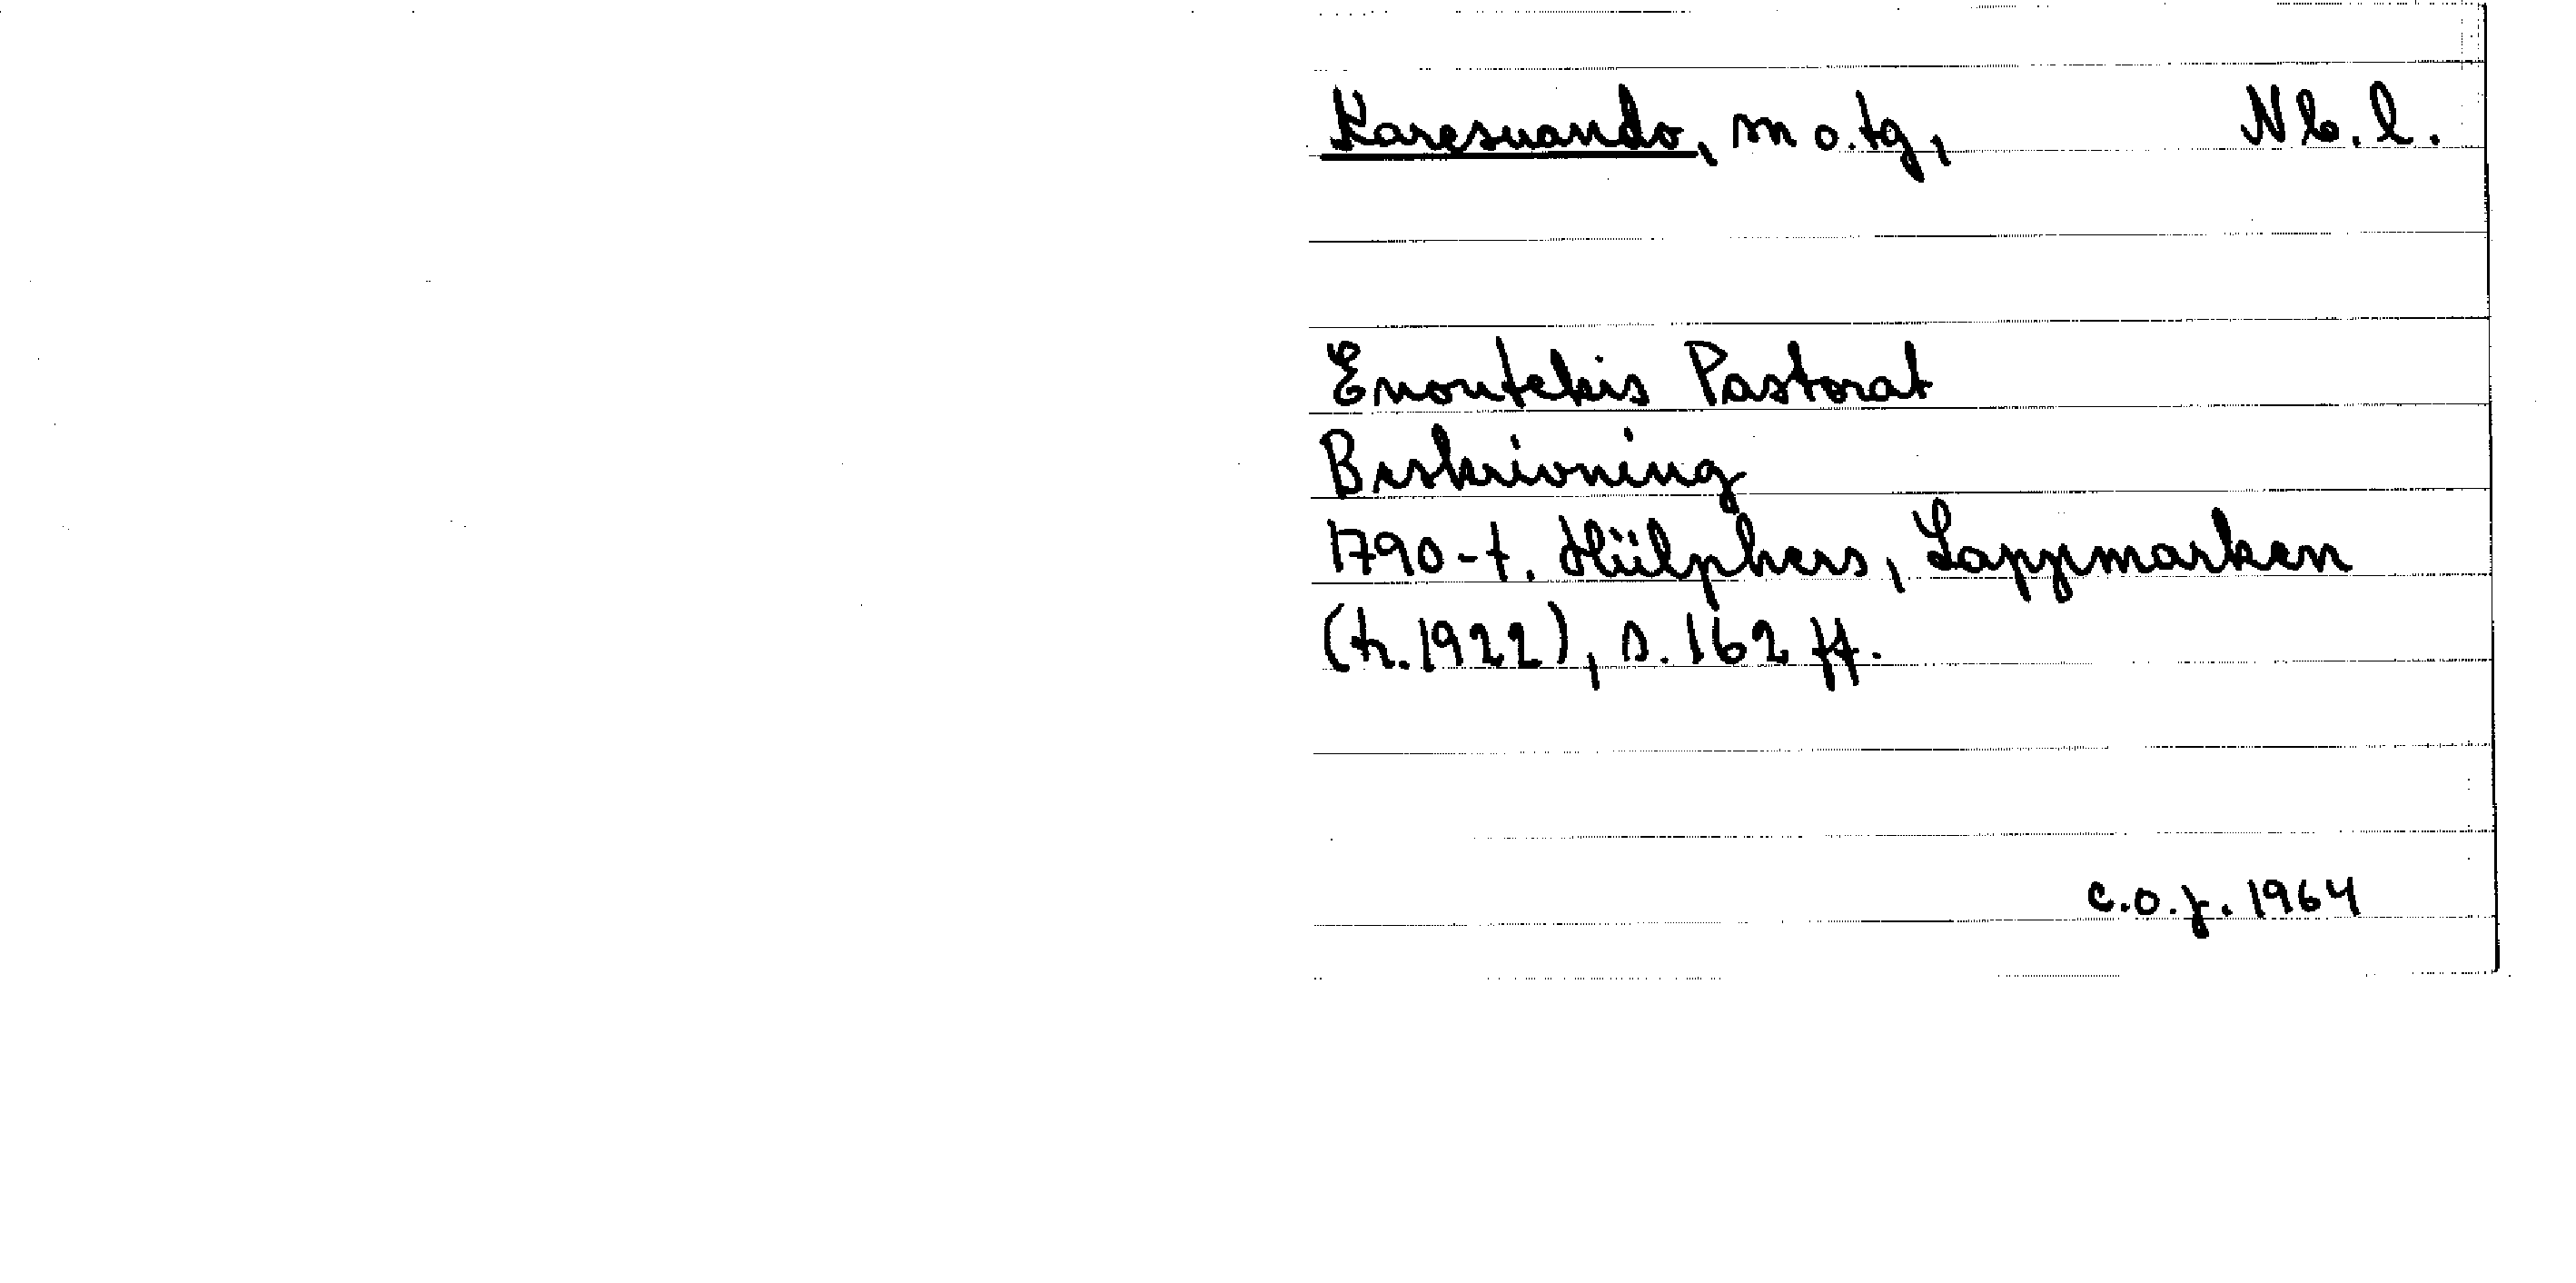 Karesuando, sn o. tg, Nb. l.
Enontekis Pastorat
Beskrivning
1790-t. Hülphers, Lappmarken
(tr. 1922), s. 162 ff.
C.O.J. 1964